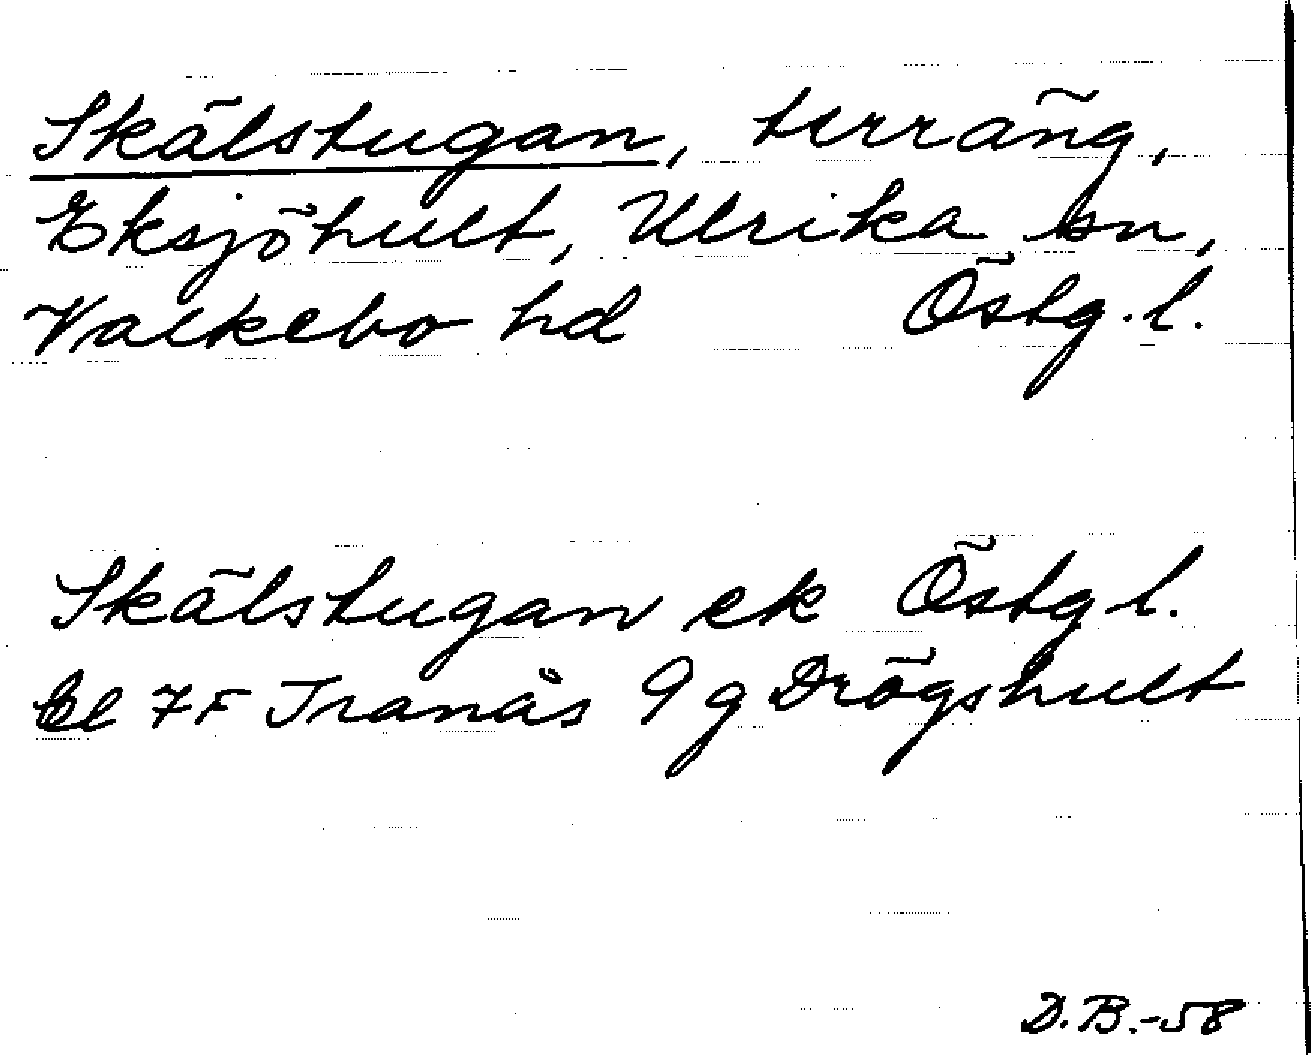 Skälstugan, terräng,
Eksjöhult, Ulrika sn,
Valkebo hd Östg. l.
Skälstugan ek Östg l.
bl 7F Tranås 9 g Drögshult
D.B.-58